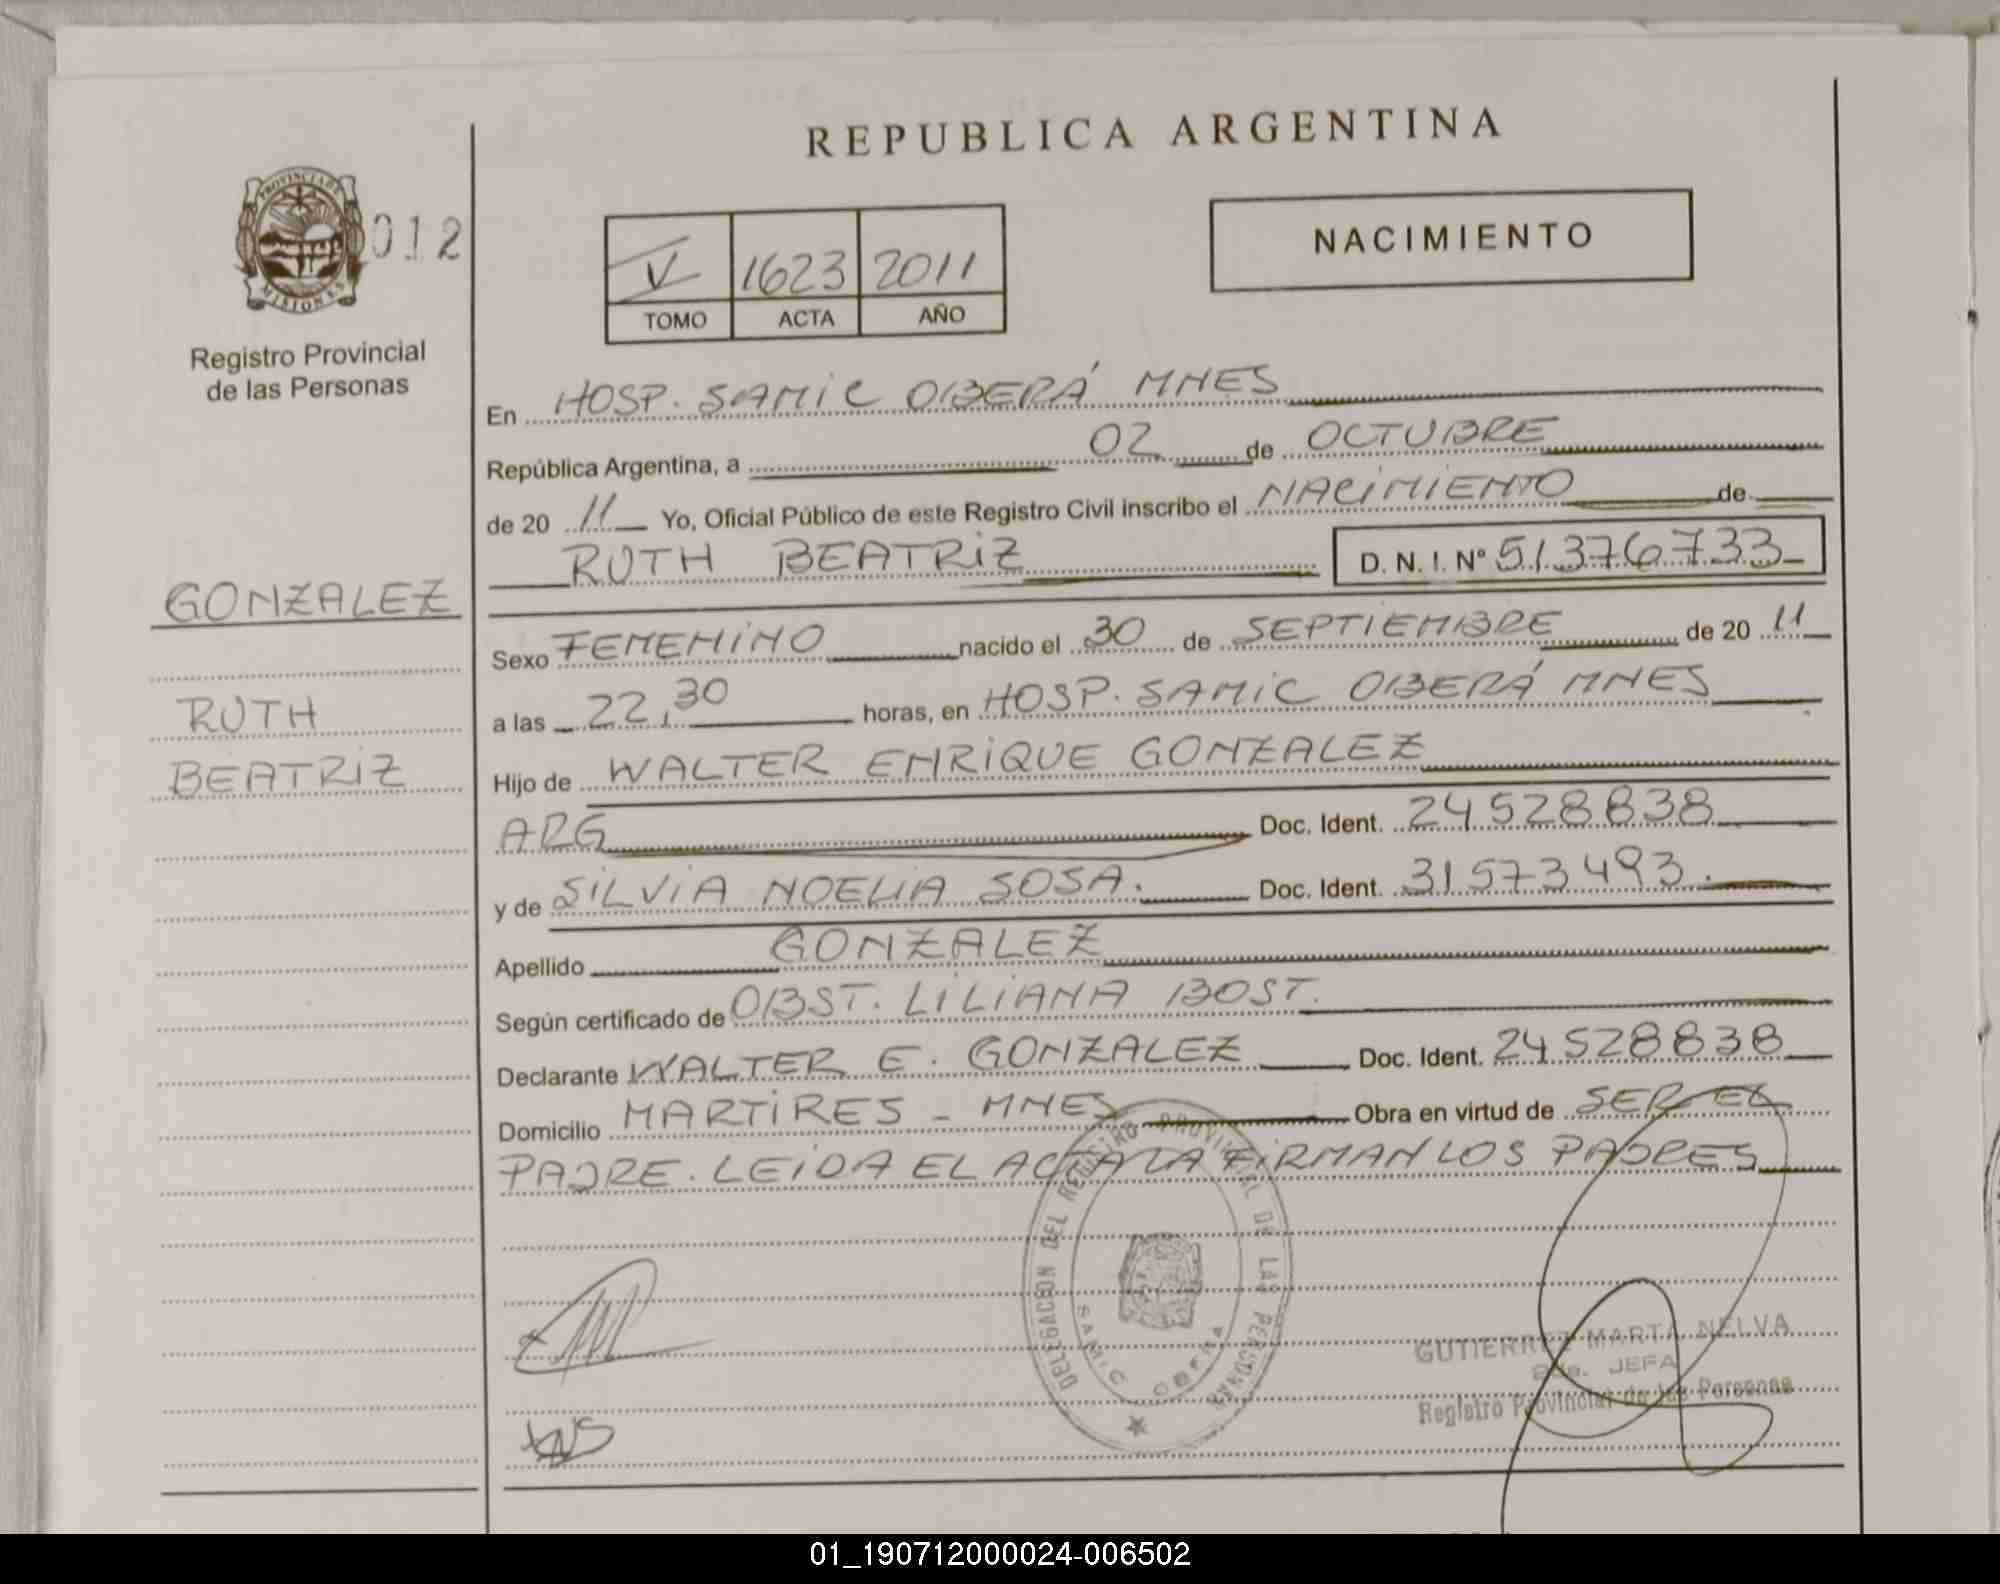 REPUBLICA ARGENTINA
PROVINCIA DE MISIONES
012
Registro Provincial
de las Personas
V 1623 2011
TOMO ACTA AÑO
NACIMIENTO
En HOSP. SAMIC OBERÁ MNES
República Argentina, a 02 de OCTUBRE
de 20 11 Yo, Oficial Público de este Registro Civil inscribo el NACIMIENTO de
RUTH BEATRIZ D. N. I. Nº 51376733
GONZALEZ
RUTH
BEATRIZ
Sexo FEMENINO nacido el 30 de SEPTIEMBRE de 20 11
a las 22,30 horas, en HOSP. SAMIC OBERÁ MNES
Hijo de WALTER ENRIQUE GONZALEZ
ARG Doc. Ident. 24528838
y de SILVIA NOELIA SOSA. Doc. Ident. 31573493.
Apellido GONZALEZ
Según certificado de OBST. LILIANA BOST.
Declarante WALTER E. GONZALEZ Doc. Ident. 24528838
Domicilio MARTIRES - MNES Obra en virtud de SER EL
PADRE. LEIDA EL ACTA LA FIRMAN LOS PADRES
DELEGACION DEL REGISTRO PROVINCIAL DE LAS PERSONAS
SAMIC OBERA
GUTIERREZ MARTA NELVA
JEFA
Registro Provincial de las Personas
01_190712000024-006502